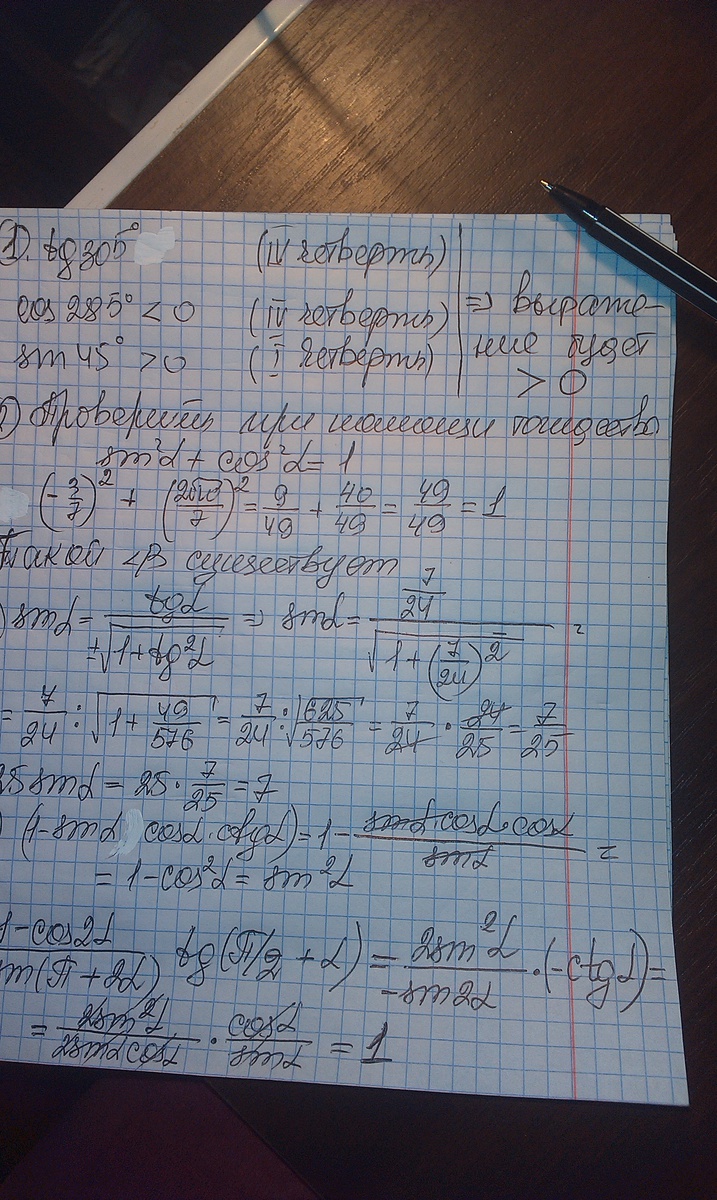 1. tg 305° (IV четверть)
cos 285° < 0 (IV четверть) => выраже-
sin 45° > 0 (I четверть) ние будет
> 0
2) Проверить при помощи тождества
sin²α + cos²α = 1
(-3/7)² + (2√10/7)² = 9/49 + 40/49 = 49/49 = 1
Такой ∠β существует
) sinα = tgα / ±√(1+tg²α) => sinα = (7/24) / √(1+(7/24)²) =
= 7/24 : √(1+49/576) = 7/24 : √(625/576) = 7/24 · 24/25 = 7/25
25 sinα = 25 · 7/25 = 7
) (1-sinα cosα · ctgα) = 1 - (sinα cosα · cosα)/sinα =
= 1-cos²α = sin²α
(1-cos2α)/(sin(π+2α)) tg(π/2 + α) = 2sin²α/(-sin2α) · (-ctgα) =
= 2sin²α/(2sinα cosα) · cosα/sinα = 1